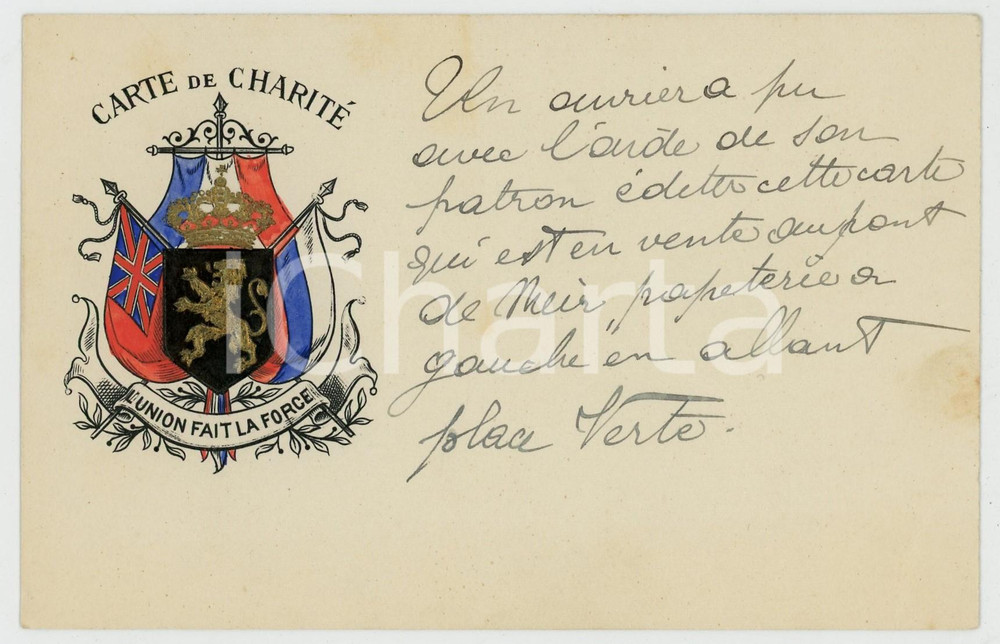 CARTE DE CHARITÉ
L'UNION FAIT LA FORCE
Un ouvrier a pu
avec l'aide de son
patron éditer cette carte
qui est en vente au pont
de Meir, papeterie a
gauche en allant
place Verte.
iCharta